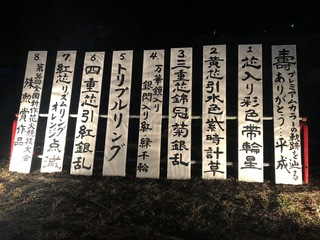 寿 プレミアムカラーの軌跡を辿る
ありがとう…平成
1. 芯入り彩色帯輪星
2. 黄芯引水色紫時計草
3. 三重芯錦冠菊銀乱
4. 万華鏡入り
銀閃入り紅緑千輪
5. トリプルリング
6. 四重芯引紅銀乱
7. 紅芯リズムリング
オレンジ点滅
8. 第36回全国新作花火競技大会
殊勲賞作品